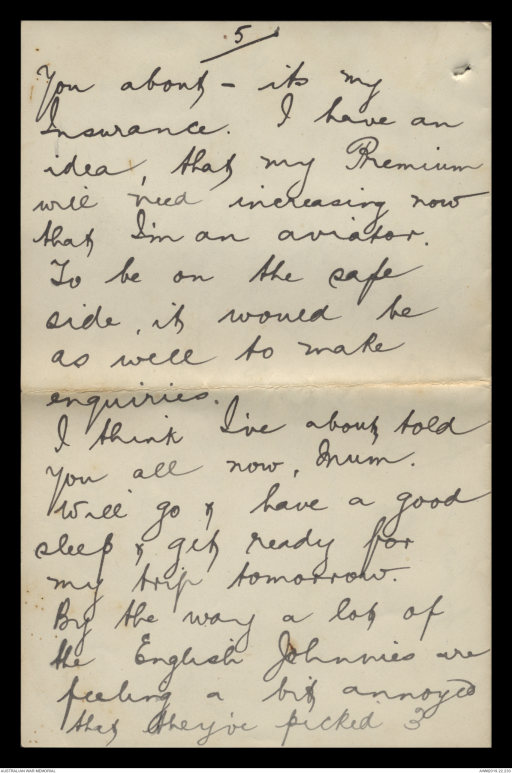 5
You about - its my
Insurance. I have an
idea, that my Premium
will need increasing now
that I'm an aviator.
To be on the safe
side, it would be
as well to make
enquiries.
I think I've about told
you all now, Mum.
Will go & have a good
sleep & get ready for
my trip tomorrow.
By the way a lot of
the English Johnnies are
feeling a bit annoyed
that they've picked 3
AUSTRALIAN WAR MEMORIAL